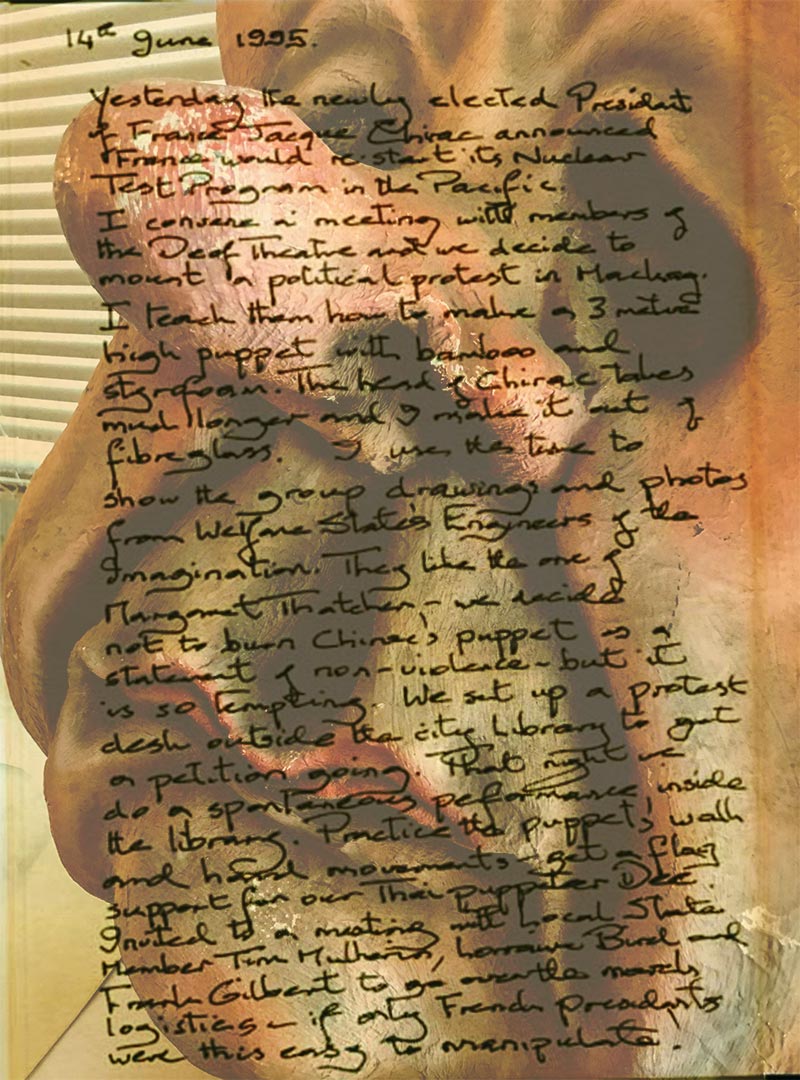 14th June 1995.
Yesterday the newly elected President
of France Jacque Chirac announced
France would re-start its Nuclear
Test Program in the Pacific.
I convene a meeting with members of
the Deaf Theatre and we decide to
mount a political protest in Mackay.
I teach them how to make a 3 metre
high puppet with bamboo and
styrofoam. The head of Chirac takes
much longer and I make it out of
fibreglass. I use the time to
show the group drawings and photos
from Welfare State's Engineers of the
Imagination. They like the one of
Margaret Thatcher - we decide
not to burn Chirac's puppet as a
statement of non-violence - but it
is so tempting. We set up a protest
desk outside the city Library to get
a petition going. That night we
do a spontaneous peformance inside
the library. Practice the puppets walk
and hand movements - get a flag
support for our Thai puppeter Dee.
Invited to a meeting with Local State
Member Tim Mulherin, Lorraine Bird and
Frank Gilbert to go over the march
logistics - if only French presidents
were this easy to manipulate.